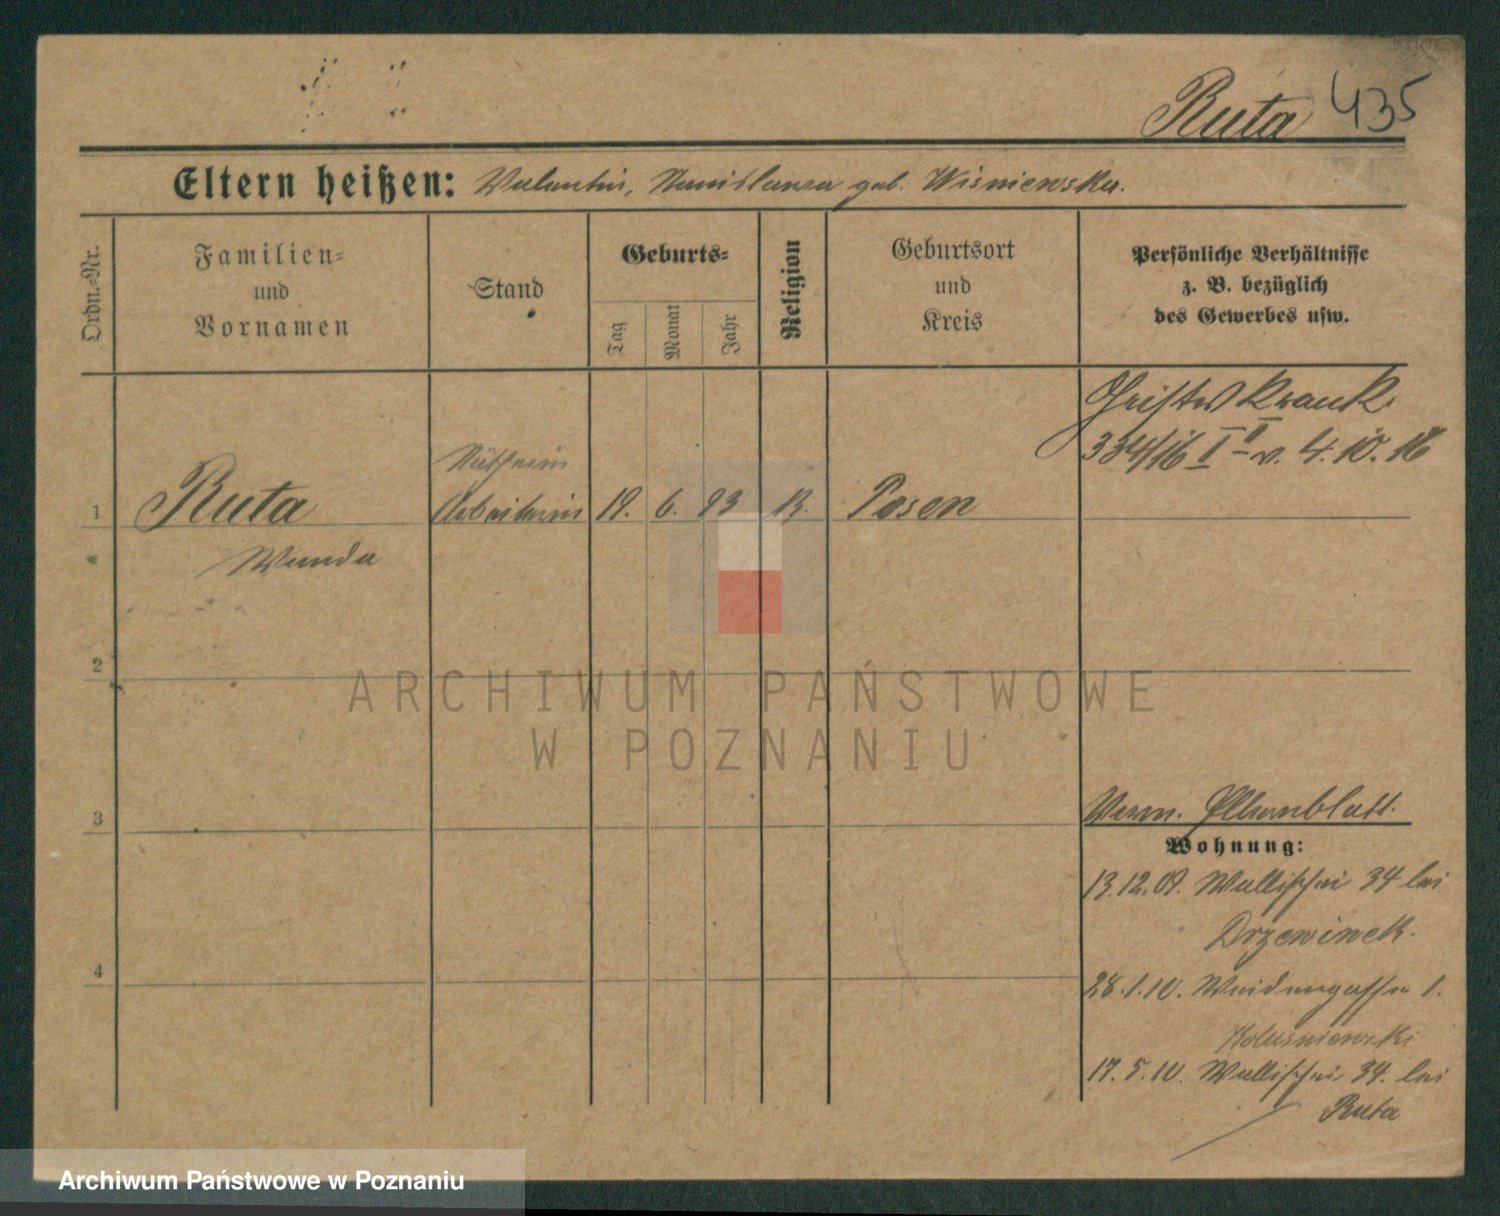 Ruta 435
Eltern heißen: Valentin, Stanislawa geb. Wisniewska.
Ordn.-Nr.
Familien-
und
Vornamen
Stand
Geburts-
Tag
Monat
Jahr
Religion
Geburtsort
und
Kreis
Persönliche Verhältnisse
z. B. bezüglich
des Gewerbes usw.
Geisteskrank
334/16 I II v. 4.10.16
Näherin
1 Ruta Arbeiterin 19. 6. 93 K. Posen
Wanda
2
3
4
Verm. Elternblatt.
Wohnung:
13.12.09. Wallischei 34 bei
Drzewinek.
28.1.10. Weidengasse 1.
17.5.10. Wallischei 34. bei
Ruta
ARCHIWUM PAŃSTWOWE
W POZNANIU
Archiwum Państwowe w Poznaniu